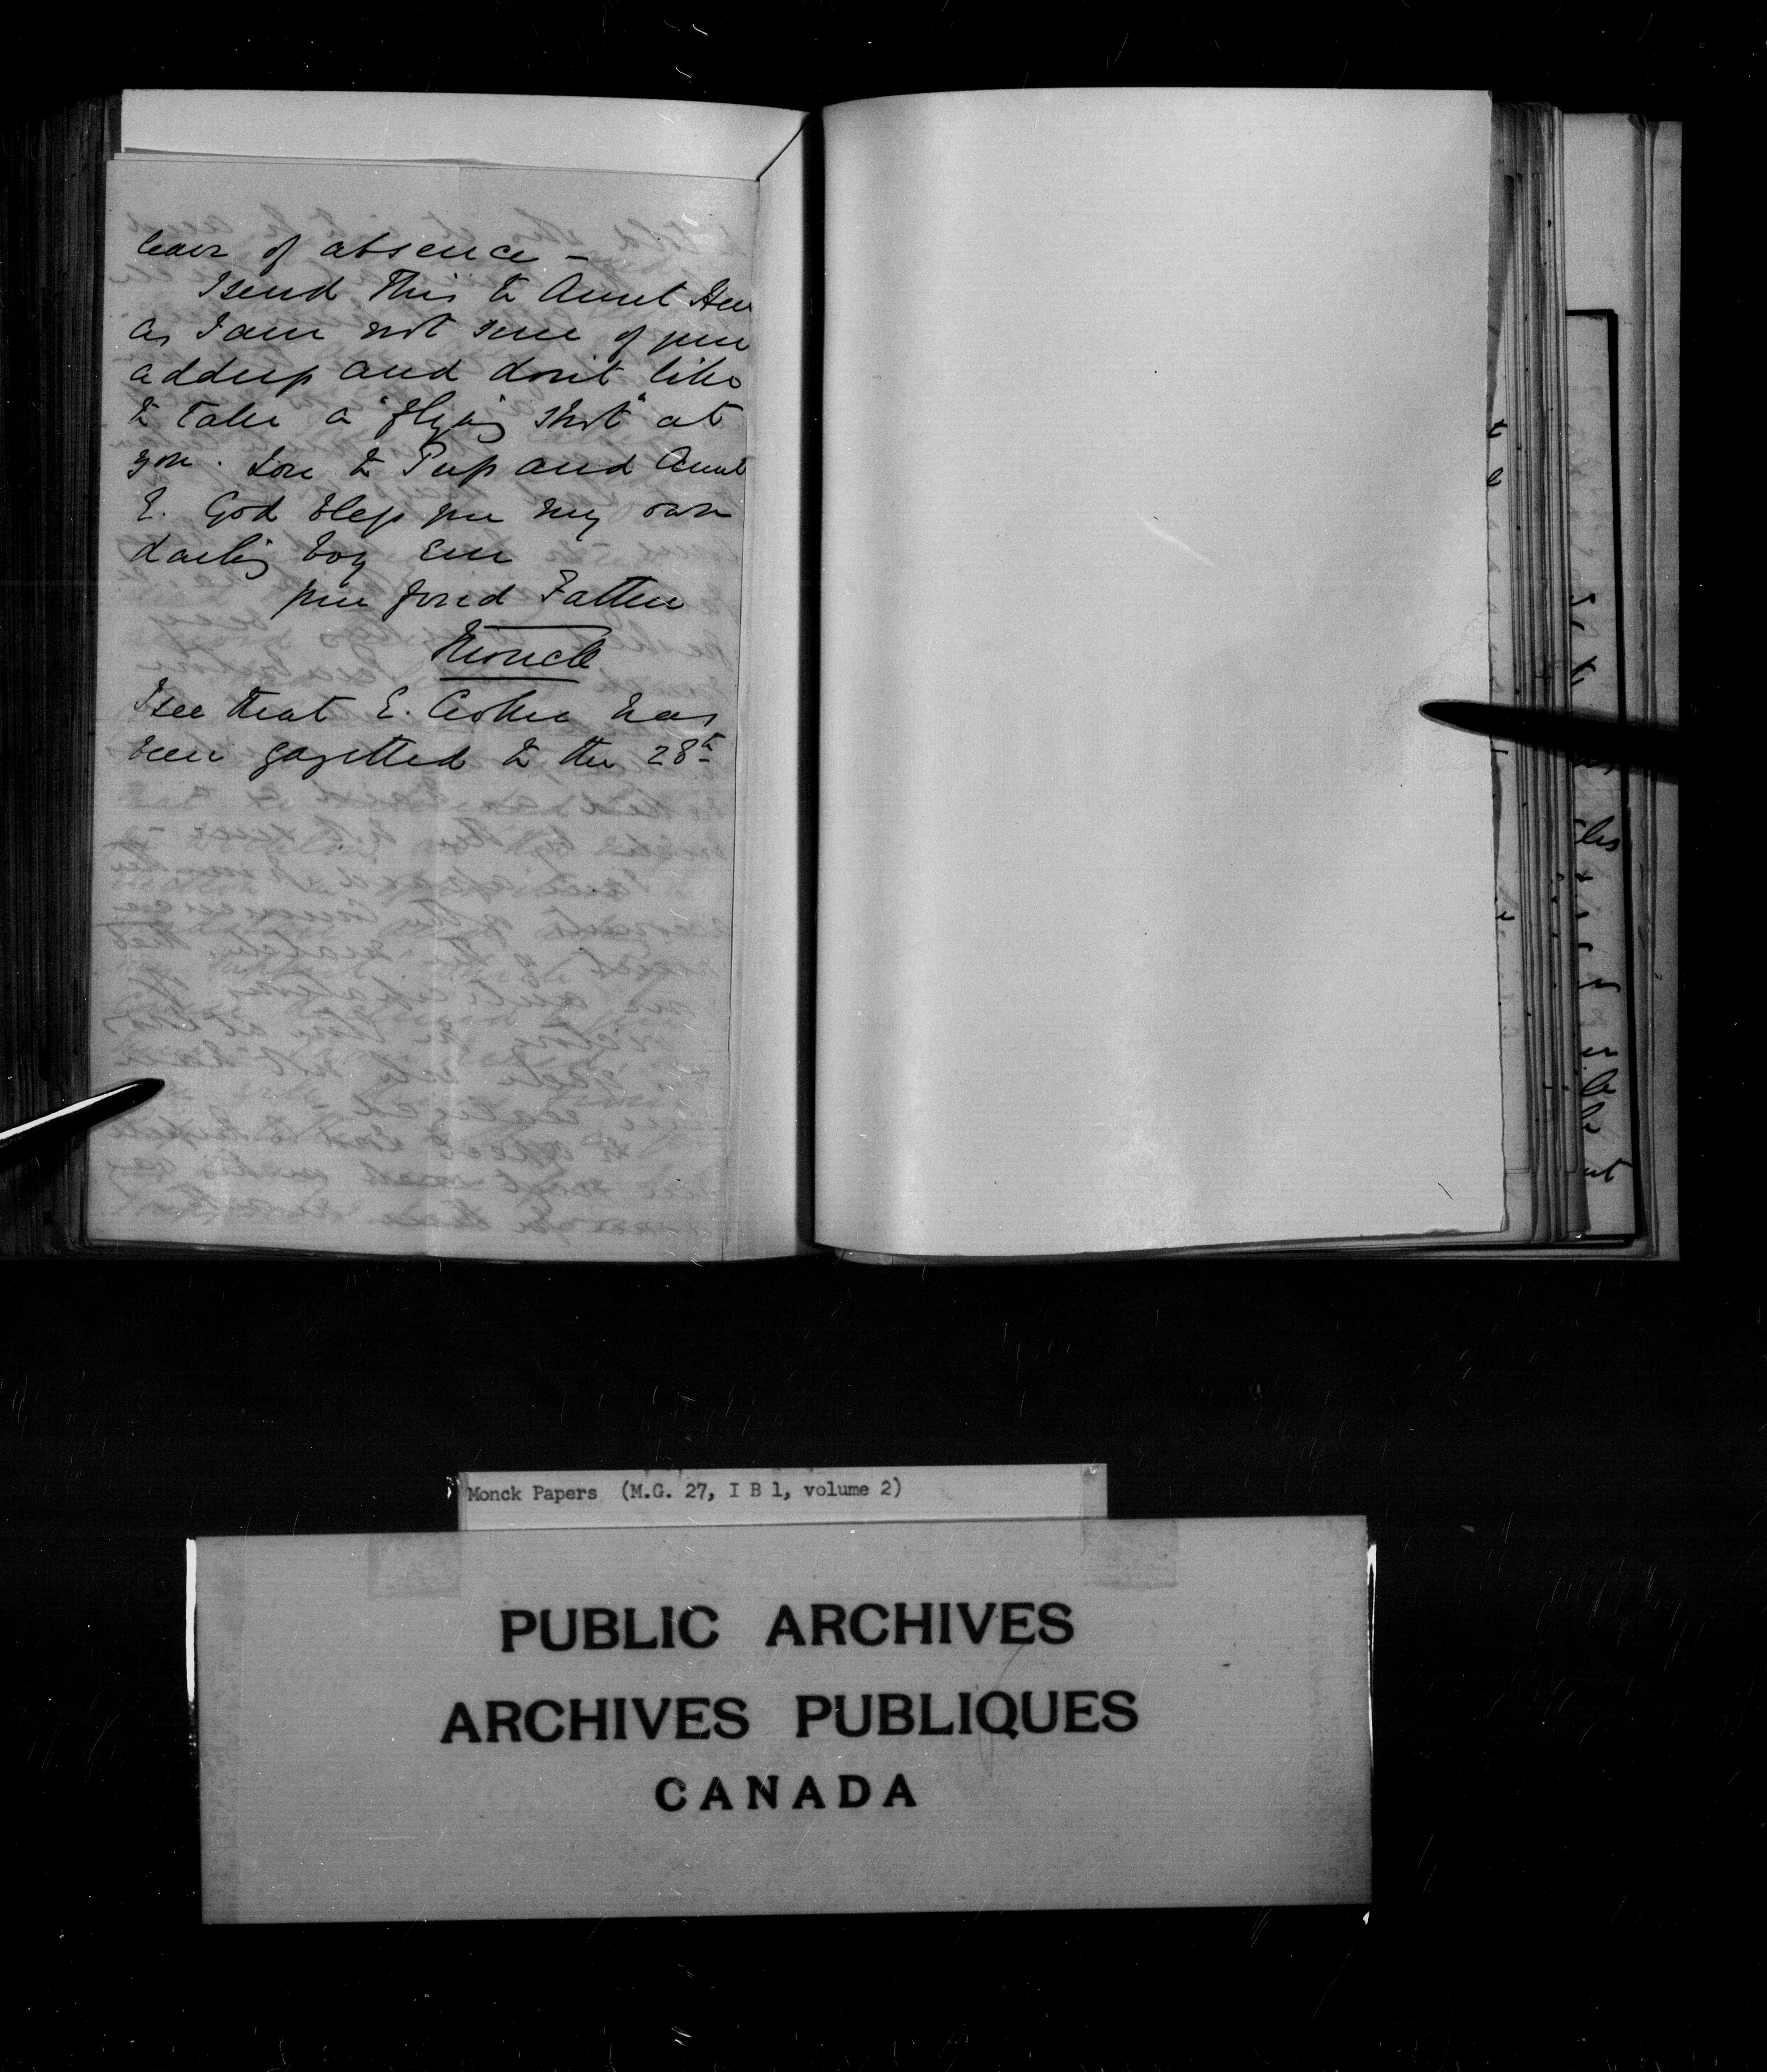 leave of absence —
I send this to Aunt
as I am not sure of your
address and don't like
to take a "flying shot" at
you. Love to Pup and Aunt
E. God bless you my own
darling boy ever
your fond Father
Monck
I see that E. has
been gazetted to the 28th
Monck Papers (M.G. 27, I B 1, volume 2)
PUBLIC ARCHIVES
ARCHIVES PUBLIQUES
CANADA